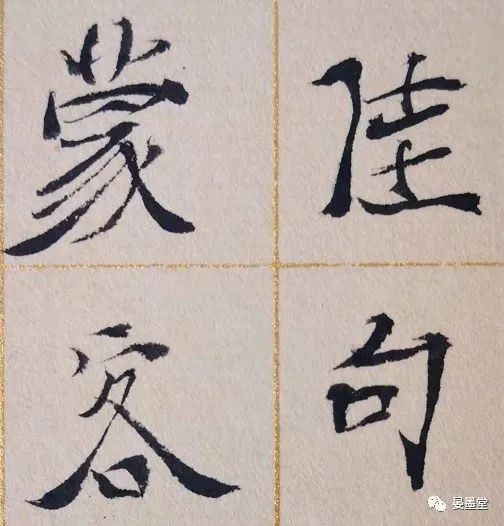 佳句
蒙客
晏墨堂